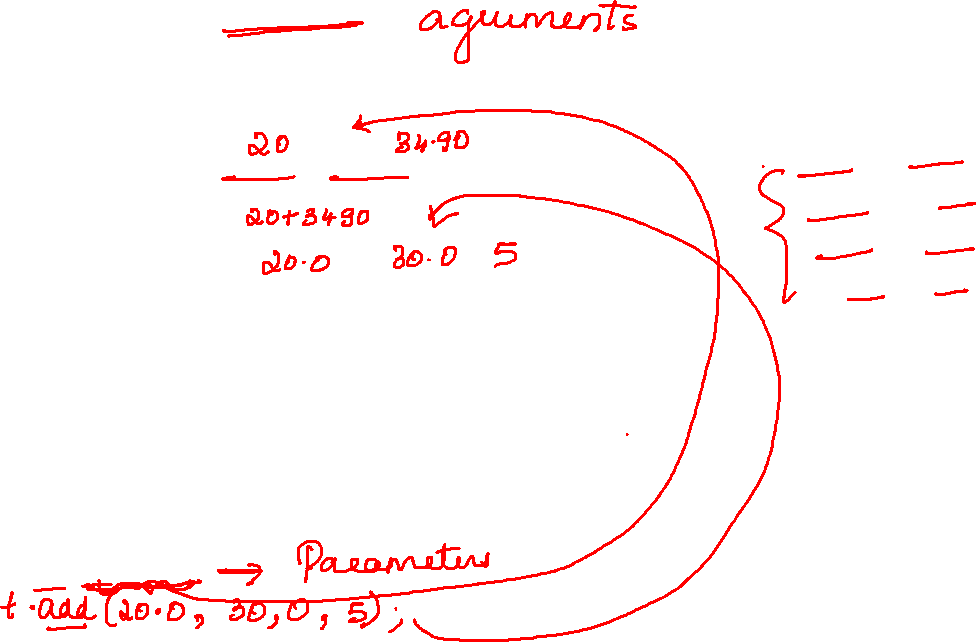 aguments
20 34.90
20+3490
20.0 30.0 5
→ Parameters
t.add(20.0, 30,0, 5);